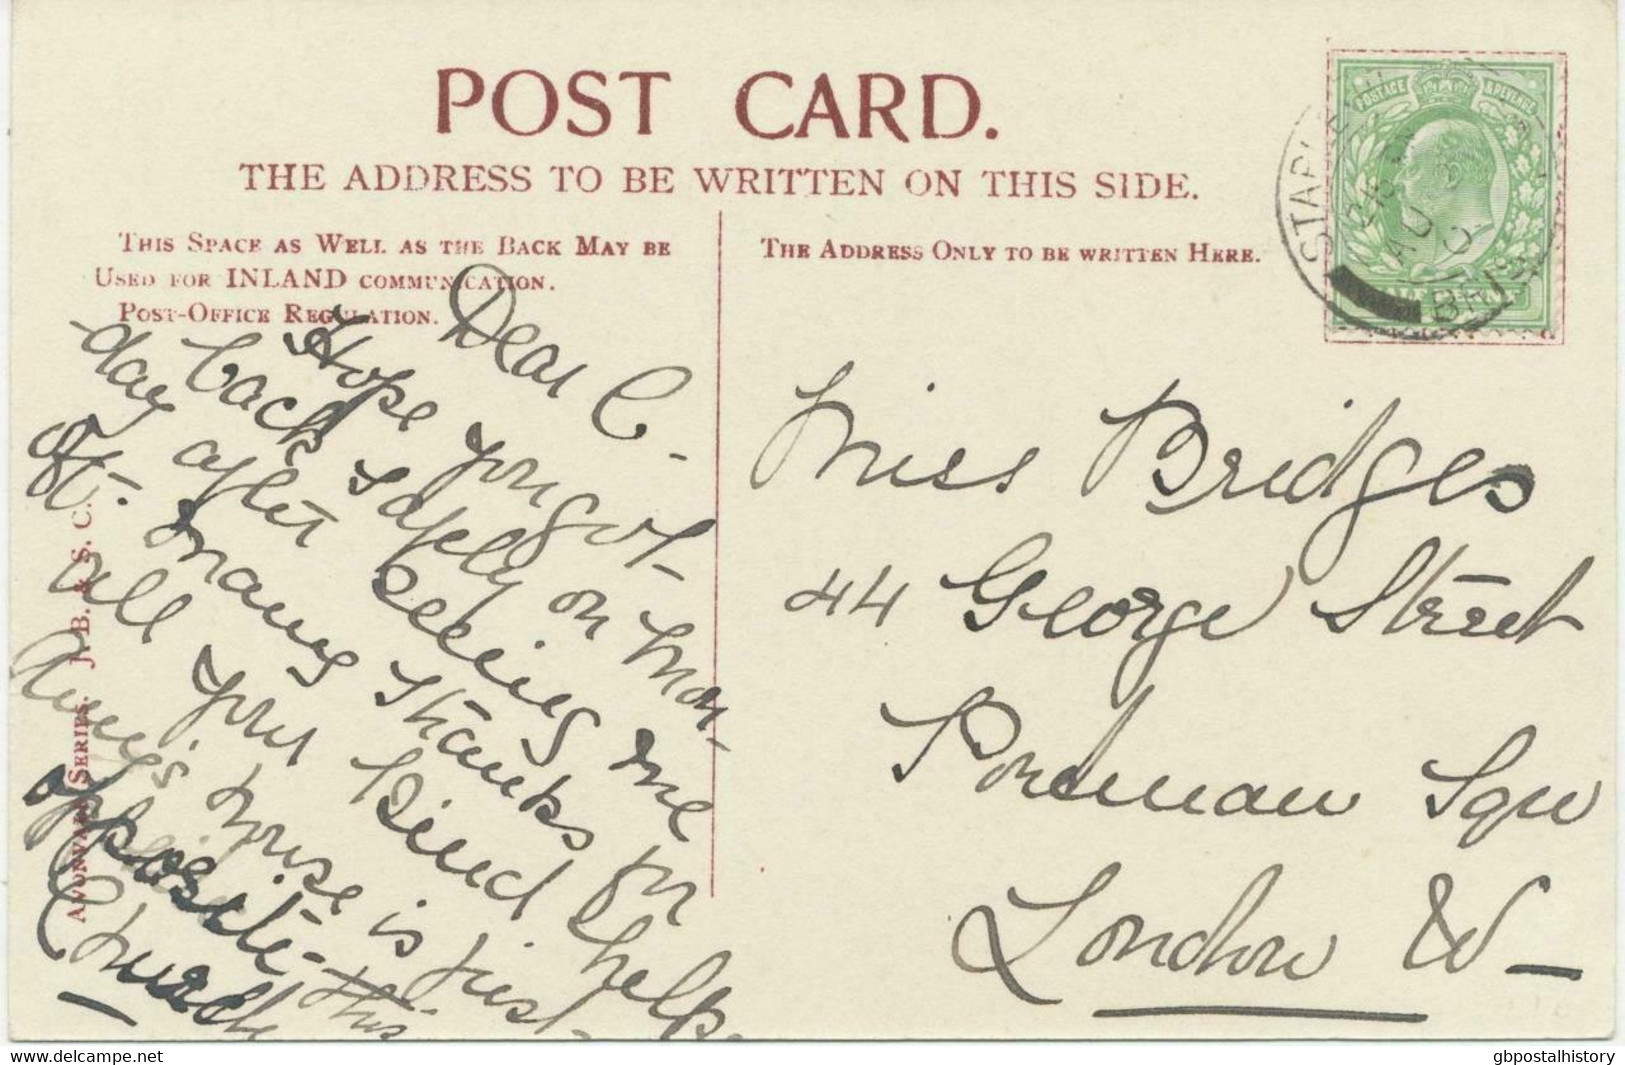 POST CARD.
THE ADDRESS TO BE WRITTEN ON THIS SIDE.
THIS SPACE AS WELL AS THE BACK MAY BE
USED FOR INLAND COMMUNICATION.
POST-OFFICE REGULATION.
THE ADDRESS ONLY TO BE WRITTEN HERE.
POSTAGE & REVENUE
Dear C.
Hope you got
back safely on Mon-
day after seeing me
off. Many thanks for
all your kind help.
Amy's house is just
opposite this
Church
Miss Bridges
44 George Street
Portman Sqre
London W
AVONVALE SERIES. J. B. & S. C.
www.delcampe.net
gbpostalhistory